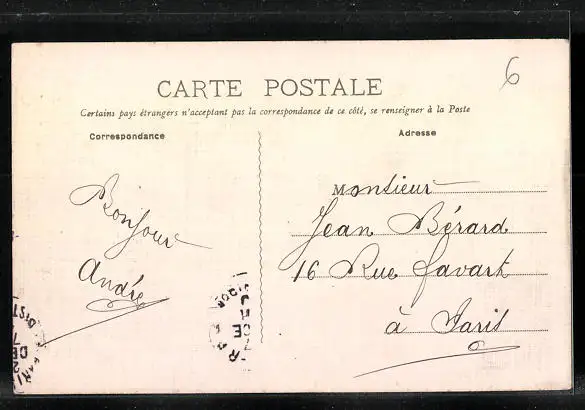 6
CARTE POSTALE
Certains pays étrangers n'acceptant pas la correspondance de ce côté, se renseigner à la Poste
Correspondance
Adresse
Bonjour
André
Monsieur
Jean Bérard
16 Rue favart
à Paris